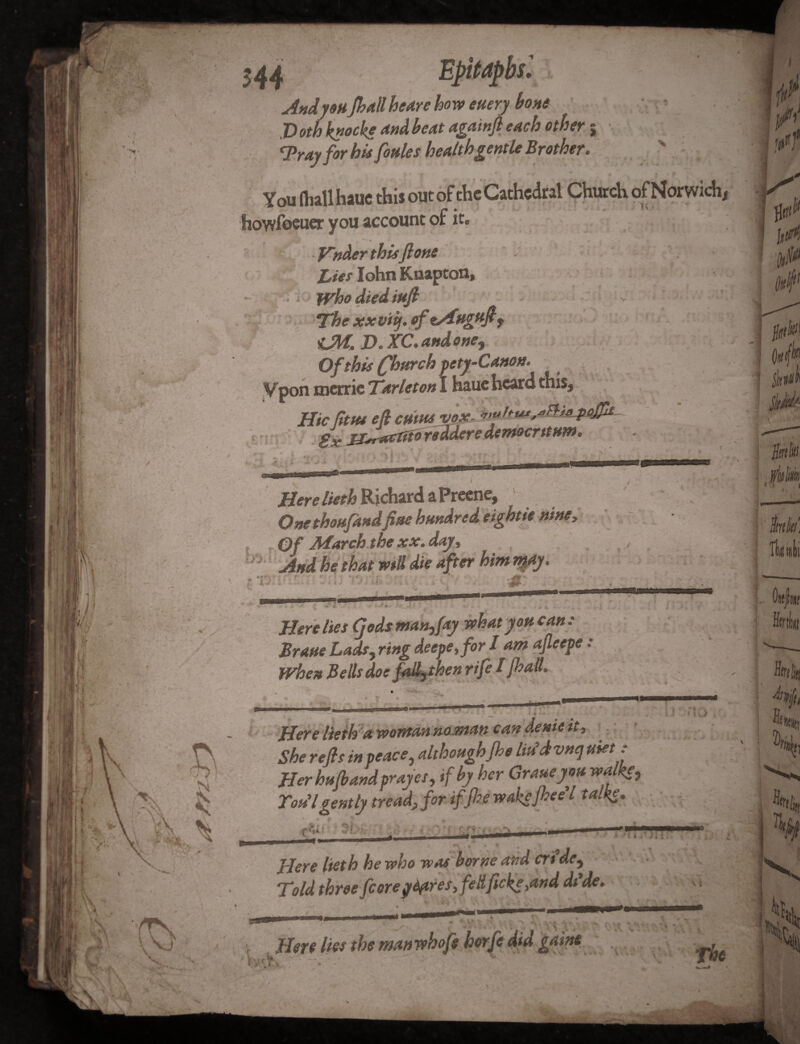 344 Epitaphs.
And you ſhall heare how euery bone
Doth knocke and beat againſt each other;
Pray for his ſoules health gentle Brother.
You ſhall haue this out of the Cathedral Church of Norwich,
howſoeuer you account of it.
Vnder this ſtone
Lies Iohn Knapton,
Who died iuſt
The xxviij. of Auguſt,
M. D. XC. and one,
Of this Church pety-Canon.
Vpon merrie Tarleton I haue heard this,
Hic ſitus eſt cuius vox, vultus, actio poſſit
Ex Heraclito reddere democritum.
Here lieth Richard a Preene,
One thouſand fiue hundred eightie nine,
Of March the xx. day,
And he that will die after him may.
Here lies Gods man, ſay what you can:
Braue Lads, ring deepe, for I am aſleepe:
When Bells doe fall, then riſe I ſhall.
Here lieth a woman no man can denie it,
She reſts in peace, although ſhe liu'd vnquiet:
Her huſband prayes, if by her Graue you walke,
You'l gently tread, for if ſhe wake ſhee'l talke.
Here lieth he who was borne and cri'de,
Told three ſcore yeares, fell ſicke, and di'de.
Here lies the man whoſe horſe did gaine
The